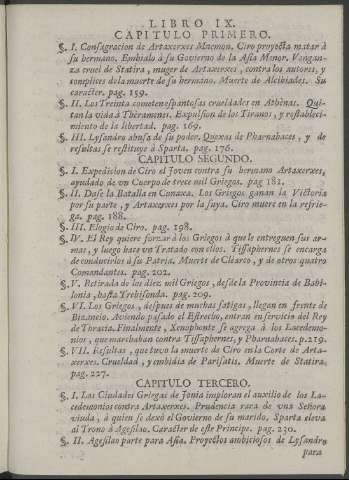 LIBRO IX.
CAPITULO PRIMERO.
§. I. Consagracion de Artaxerxes Mnemon. Ciro proyecta matar à
su hermano. Embialo à su Govierno de la Asia Menor. Vengan-
za cruel de Statira, muger de Artaxerxes, contra los autores, y
complices de la muerte de su hermano. Muerte de Alcibiades. Su
caracter. pag. 159.
§. II. Los Treinta cometen espantosas crueldades en Athènas. Qui-
tan la vida à Thèramenes. Expulsion de los Tiranos, y restableci-
miento de la libertad. pag. 169.
§. III. Lysandro abusa de su poder. Quexas de Pharnabaces, y de
resultas se restituye à Sparta. pag. 176.
CAPITULO SEGUNDO.
§. I. Expedicion de Ciro el Joven contra su hermano Artaxerxes,
ayudado de un Cuerpo de trece mil Griegos. pag 181.
§. II. Dase la Batalla en Cunaxa. Los Griegos ganan la Victoria
por su parte, y Artaxerxes por la suya. Ciro muere en la refrie-
ga. pag. 188.
§. III. Elogio de Ciro. pag. 198.
§. IV. El Rey quiere forzar à los Griegos à que le entreguen sus ar-
mas, y luego hace un Tratado con ellos. Tissaphernes se encarga
de conducirlos à su Patria. Muerte de Clearco, y de otros quatro
Comandantes. pag. 202.
§. V. Retirada de los diez mil Griegos, desde la Provincia de Babi-
lonia, hasta Trebisonda. pag. 209.
§. VI. Los Griegos, despues de muchas fatigas, llegan en frente de
Bizancio. Aviendo pasado el Estrecho, entran en servicio del Rey
de Thracia. Finalmente, Xenophonte se agrega à los Lacedemo-
nios, que marchaban contra Tissaphernes, y Pharnabaces. p.219.
§. VII. Resultas, que tuvo la muerte de Ciro en la Corte de Arta-
xerxes. Crueldad, y embidia de Parisatis. Muerte de Statira,
pag. 227.
CAPITULO TERCERO.
§. I. Las Ciudades Griegas de Jonia imploran el auxilio de los La-
cedemonios contra Artaxerxes. Prudencia rara de una Señora
viuda, à quien se dexò el Govierno de su marido. Sparta eleva
al Trono à Agesilao. Caracter de este Principe. pag. 230.
§. II. Agesilao parte para Asia. Proyectos ambiciosos de Lysandro
para